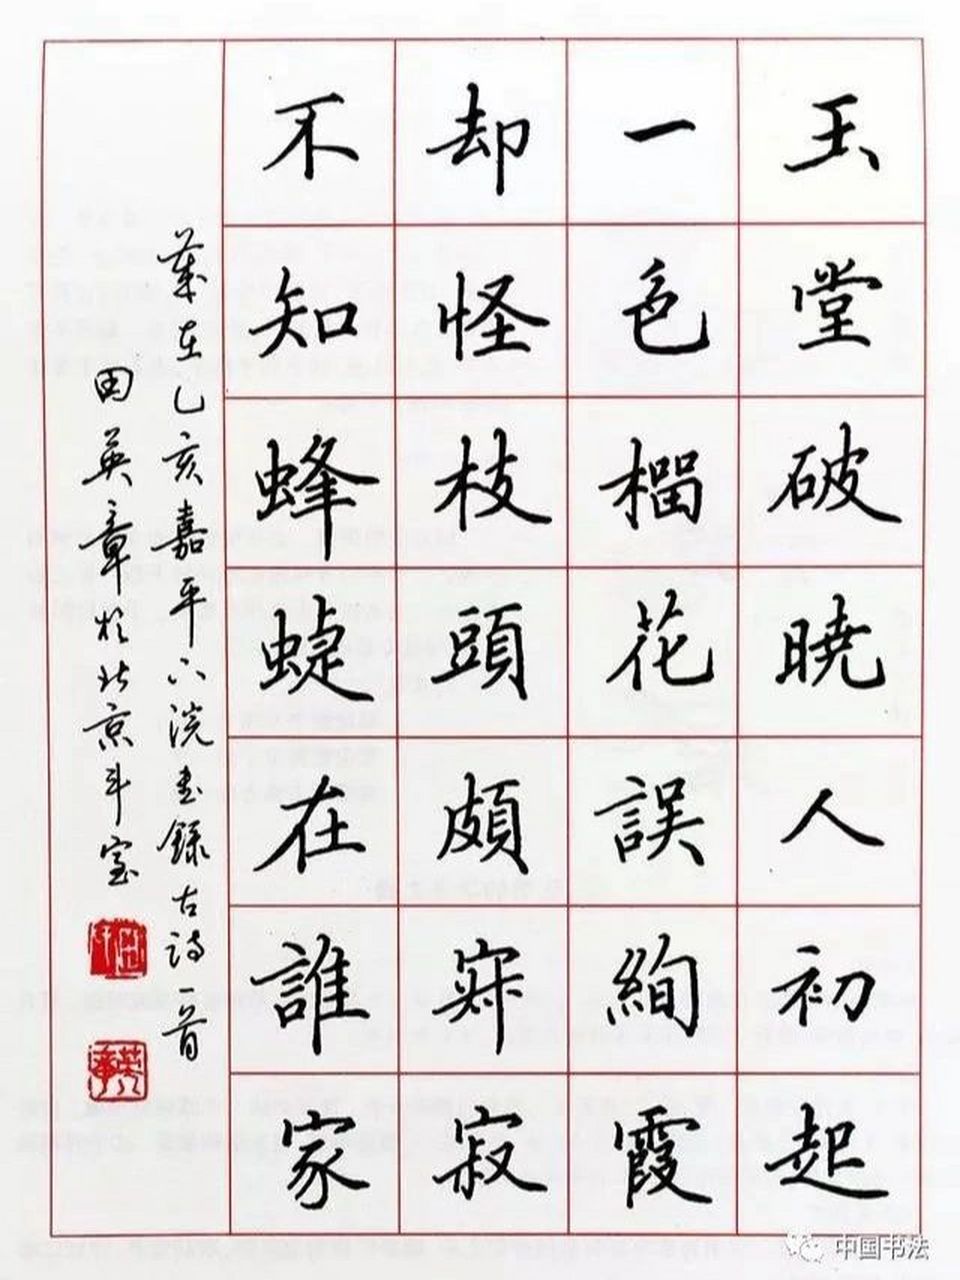 玉堂破曉人初起
一色榴花誤絢霞
却怪枝頭頗寂寂
不知蜂蜨在誰家
歲在乙亥嘉平六浣書錄古詩一首
田英章於北京斗室
英章
中国书法